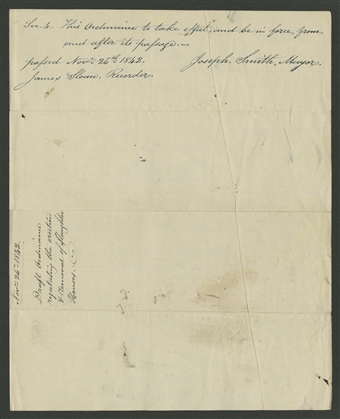 Sec. 4. This Ordinance to take effect, and be in force, from
and after its passage.—
passed Novr. 26th 1842.
Joseph Smith, Mayor.
James Sloan, Recorder
Novr. 26th 1842.
Draft Ordinance
regulating the erection
& Removal of Slaughter
Houses.